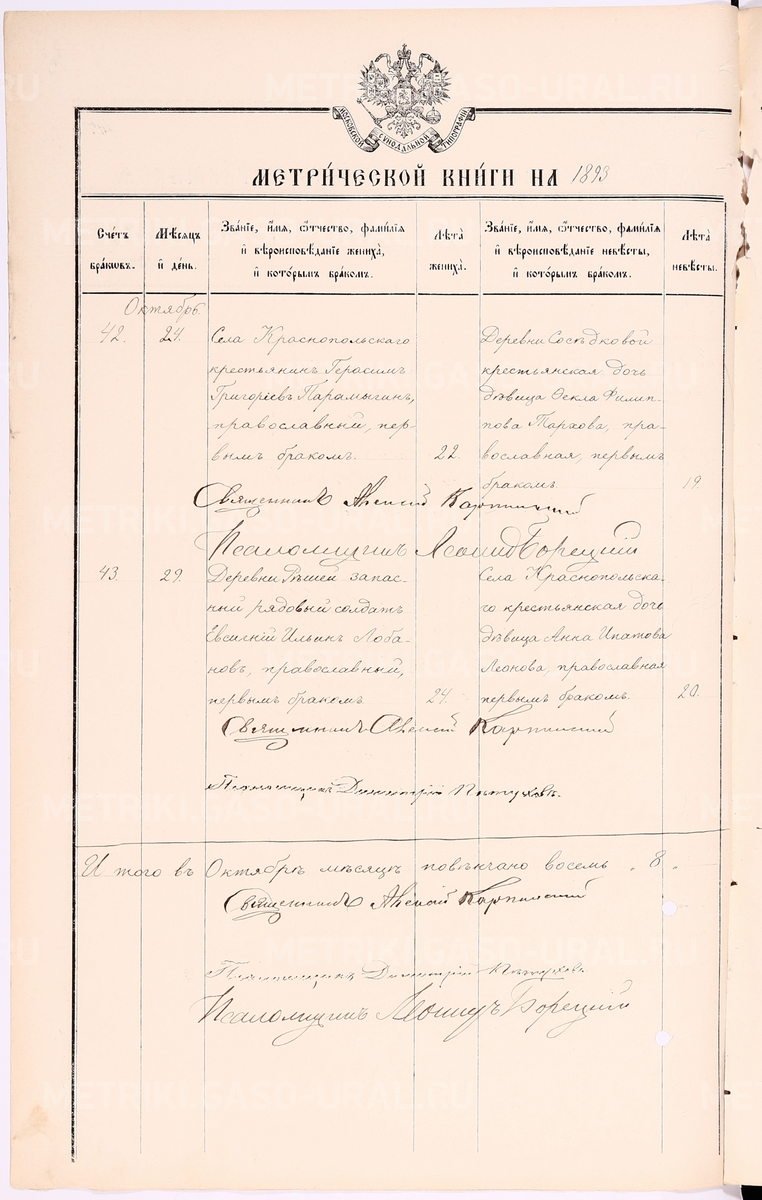 МОСКОВСКОЙ СѴНОДАЛЬНОЙ ТИПОГРАФІИ
МЕТРИ́ЧЕСКОЙ КНИ́ГИ НА 1893
Сче́тъ бра́кѡвъ.
Мѣ́сяцъ и҆ де́нь.
Зва́нїе, и҆́мя, ѻ҆́тчество, фами́лїя и҆ вѣроисповѣ́данїе жениха̀, и҆ кото́рымъ бра́комъ.
Лѣ́та жениха̀.
Зва́нїе, и҆́мя, ѻ҆́тчество, фами́лїя и҆ вѣроисповѣ́данїе невѣ́сты, и҆ кото́рымъ бра́комъ.
Лѣ́та невѣ́сты.
Октябрь.
42. 24.
Села Краснопольскаго
крестьянинъ Герасимъ
Григоріевъ Парамыгинъ,
православный, пер-
вымъ бракомъ.
22.
Деревни Сосѣдковой
крестьянская дочь
дѣвица Ѳекла Филип-
пова Тархова, пра-
вославная, первымъ
бракомъ.
19.
Священникъ Алексій Карпинскій
Псаломщикъ Леонидъ Борецкій
43. 29.
Деревни Рѣшей запас-
ный рядовый солдатъ
Евсигній Ильинъ Лоба-
новъ, православный,
первымъ бракомъ
24.
Села Краснопольска-
го крестьянская дочь
дѣвица Анна Ипатова
Леонова, православная
первымъ бракомъ.
20.
Священникъ Алексій Карпинскій
Димитрій Пѣтуховъ.
И того въ Октябрѣ мѣсяцѣ повѣнчано восемь „ 8 „
Священникъ Алексій Карпинскій
Димитрій Пѣтуховъ
Псаломщикъ Леонидъ Борецкій
METRIKI.GASO-URAL.RU